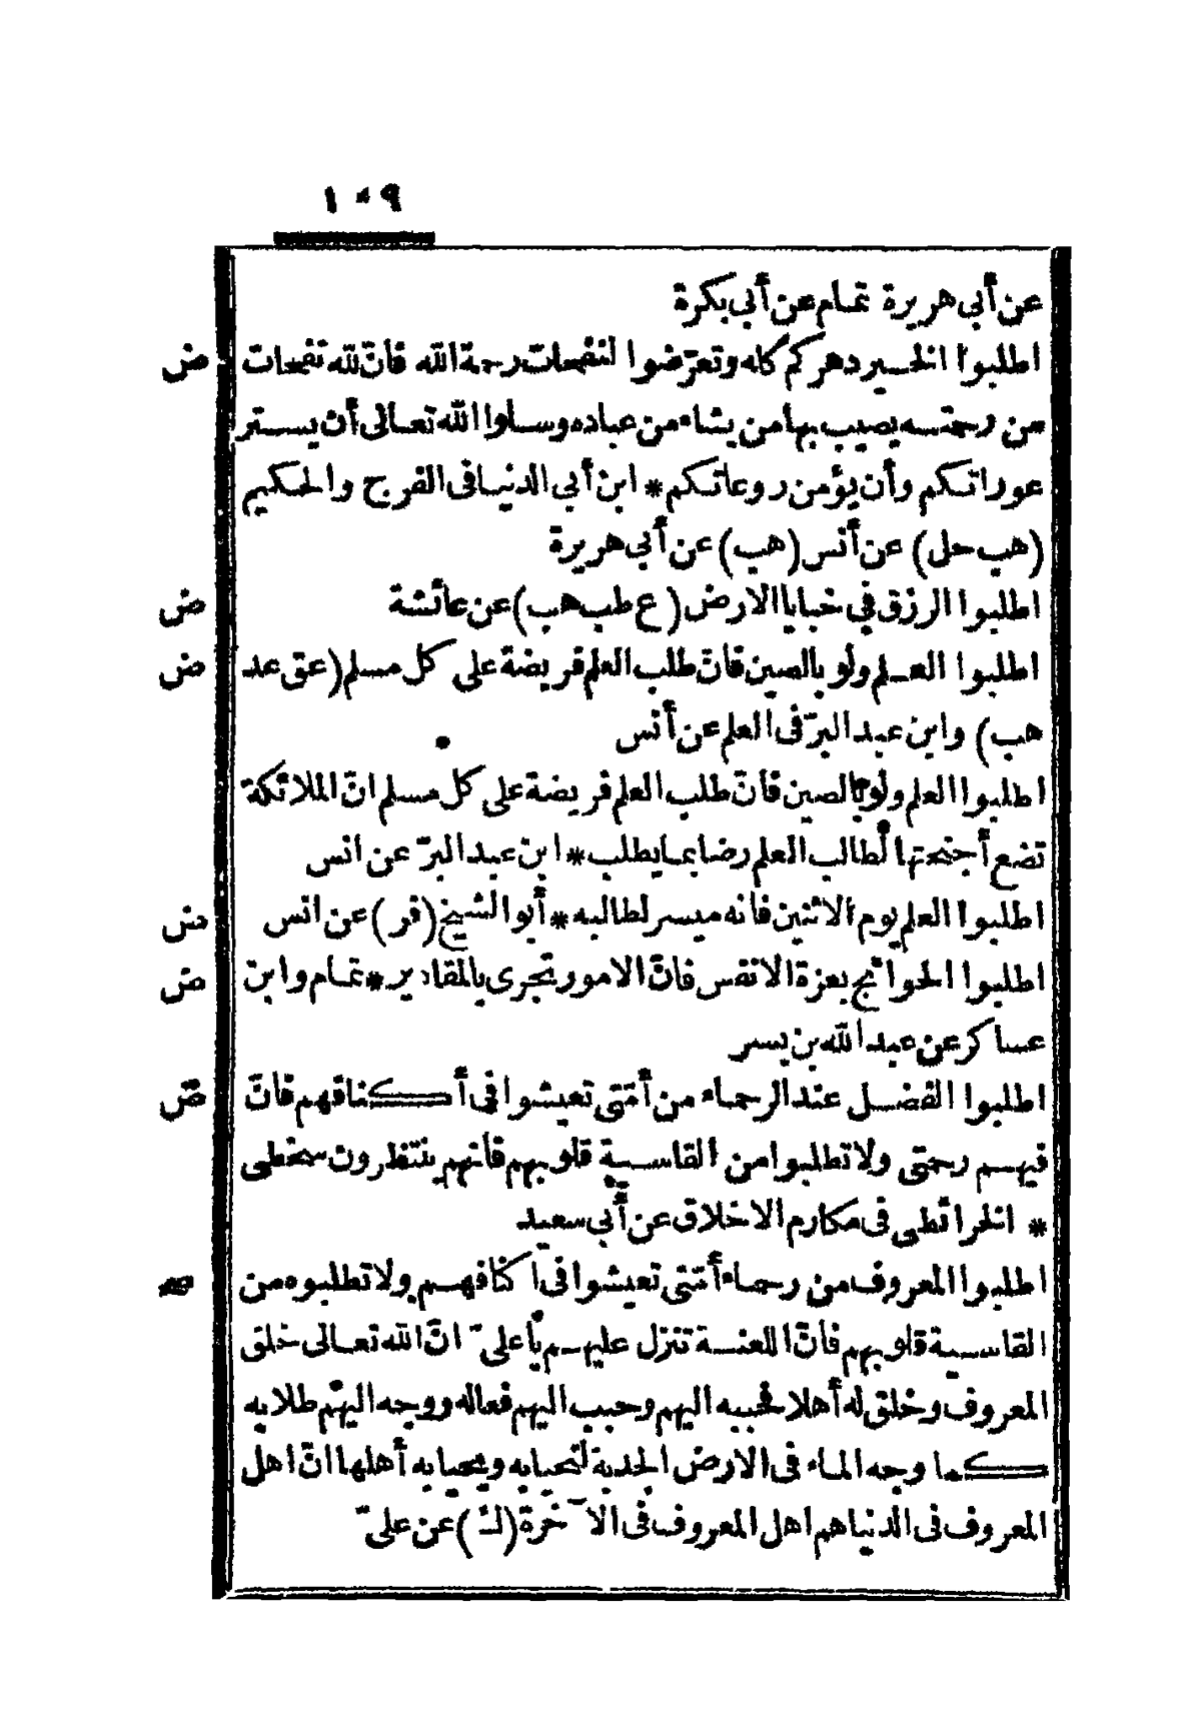 ١٠٩
عن أبي هريرة تمام عن أبي بكرة
اطلبوا الخير دهركم كله وتعرّضوا لنفحات رحمة الله فانّ لله نفحات ض
من رحمته يصيب بها من يشاء من عباده وسلوا الله تعالى أن يستر
عوراتكم وأن يؤمن روعاتكم * ابن أبي الدنيا فى الفرج والحكيم
(هب حل) عن أنس (هب) عن أبي هريرة
اطلبوا الرزق في خبايا الارض (ع طب هب) عن عائشة ض
اطلبوا العلم ولو بالصين فانّ طلب العلم فريضة على كل مسلم (عق عد ض
هب) وابن عبد البرّ فى العلم عن أنس
اطلبوا العلم ولو بالصين فانّ طلب العلم فريضة على كل مسلم انّ الملائكة
تضع أجنحتها لطالب العلم رضا بما يطلب * ابن عبد البرّ عن انس
اطلبوا العلم يوم الاثنين فانه ميسر لطالبه * أبو الشيخ (فر) عن انس ض
اطلبوا الحوائج بعزة الانفس فانّ الامور تجرى بالمقادير * تمام وابن ض
عساكر عن عبد الله بن بسر
اطلبوا الفضل عند الرحماء من أمّتى تعيشوا فى أكنافهم فانّ ض
فيهم رحمتى ولا تطلبوا من القاسية قلوبهم فانهم ينتظرون سخطى
* الخرائطى فى مكارم الاخلاق عن أبي سعيد
اطلبوا المعروف من رحماء أمّتى تعيشوا فى أكنافهم ولا تطلبوه من صح
القاسية قلوبهم فانّ اللعنة تنزل عليهم يا علىّ انّ الله تعالى خلق
المعروف وخلق له أهلا فحببه اليهم وحبب اليهم فعاله ووجه اليهم طلابه
كما وجه الماء فى الارض الجدبة لتحيا به ويحيا به أهلها انّ اهل
المعروف فى الدنيا هم اهل المعروف فى الآخرة (ك) عن علىّ